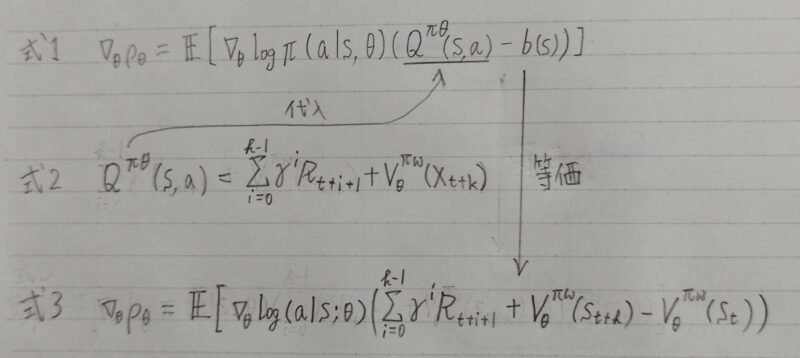 式1 ∇θρθ = 𝔼[∇θ log π(a|s,θ)(Q^πθ(s,a) - b(s))]
代入
式2 Q^πθ(s,a) = Σ_{i=0}^{k-1} γ^i R_{t+i+1} + V_θ^πω(X_{t+k})
等価
式3 ∇θρθ = 𝔼[∇θ log(a|s;θ)(Σ_{i=0}^{k-1} γ^i R_{t+i+1} + V_θ^πω(S_{t+k}) - V_θ^πω(S_t))